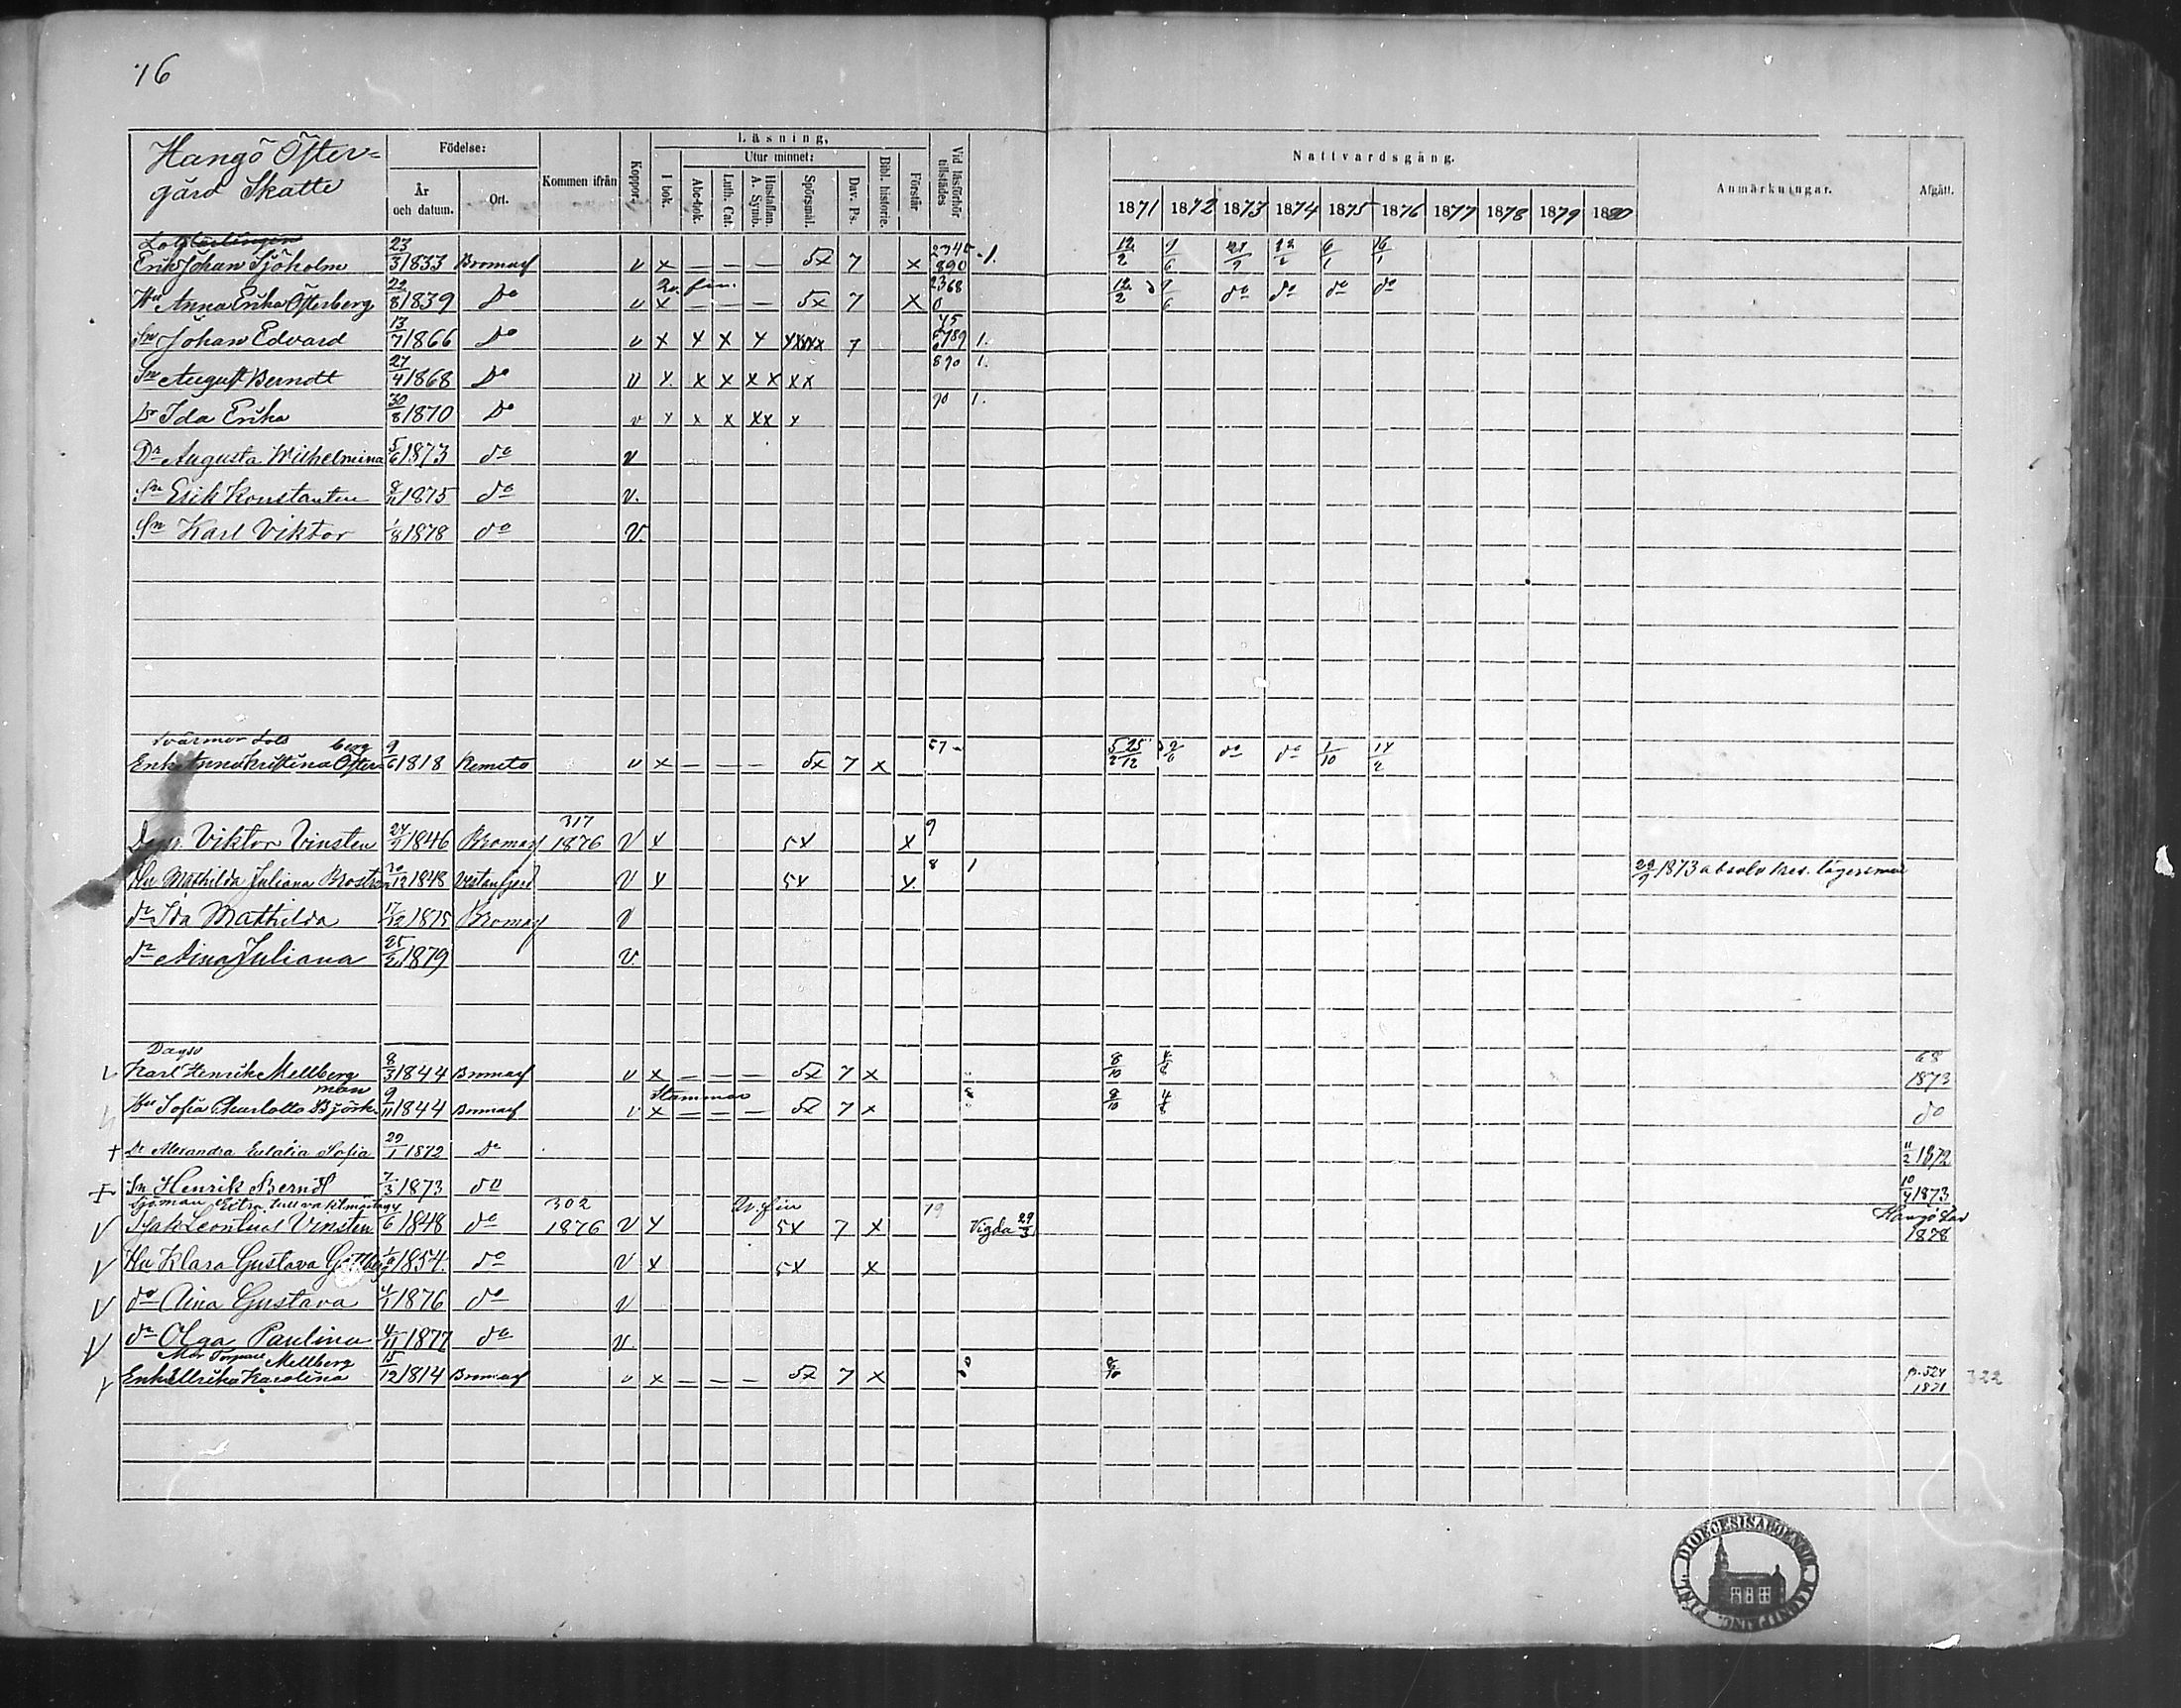 76
Hangö Öster-
gård Skatte
Födelse:
År och datum.
Ort.
Kommen ifrån
Koppor.
Läsning,
I bok.
Utur minnet:
Abc-bok.
Luth. Cat.
Hustaflan. A. Symb.
Spörsmål.
Dav. Ps.
Bibl. historie.
Förstår
Vid läsförhör tillstädes
Nattvardsgång.
1871 1872 1873 1874 1875 1876 1877 1878 1879 1880
Anmärkningar.
Afgått.
Erik Johan Sjöholm 23/3 1833 Bromarf v x — — — 5x 7 x 2345 890 1. 12/2 9/6
2v. fin.
Hu Anna Erika Österberg 22/8 1839 Do v x — — — 5x 7 x 2368 0 12/2 9/6 do do do do
Sn Johan Edvard 13/7 1866 Do v x x x x xxxxx 7 45 6789 1.
Sn August Berndt 27/4 1868 Do v x x x x x x x 890 1.
Dr Ida Erika 30/8 1870 Do v x x x xx x 90 1.
Dr Augusta Wilhelmina 5/6 1873 do v
Sn Erik Konstantin 8/11 1875 do v.
Sn Karl Viktor 1/8 1878 do v.
Svärmor Lots
Enk Anna Kristina Österberg 9/6 1818 Kemito v x — — — 5x 7 x 57 do do 1/10 14/2
317
Viktor Vinsten 24/9 1846 Bromarf 1876 v x 5x x 9
Hu Mathilda Juliana Broström 20/12 1848 Vestanfjerd v x 5x x 8 1 29/9 1873 absolv. lägersmål
dr Ida Mathilda 17/12 1875 Bromarf v
dr Aina Juliana 25/2 1879 v.
Dags
Karl Henrik Mellberg 8/3 1844 Bromarf v x — — — 5x 7 x 8/10 68 1873
Stammar
Hu Sofia Charlotta Björkman 9/11 1844 Bromarf v x — — — 5x 7 x 8/10 do
Dr Alexandra Eulalia Sofia 29/1 1872 Do 11/2 1872
Sn Henrik Berndt 7/3 1873 do 10/4 1873
Sjöman Extra tullvaktmästare
302 2v. fin 79
Leontius Vinsten 1848 do 1876 v x 5x 7 x Vigda 29/3 Hangö stad 1878
Hu Klara Gustava 1854 do v x 5x x
dr Aina Gustava 1876 do v
dr Olga Paulina 4/11 1877 do v.
Mor Torpare
Enk Ulrika Karolina Mellberg 15/12 1814 Bromarf v x — — — 5x 7 x 8/10 p. 324 1871 322
DIOECESIS ABOENSIS